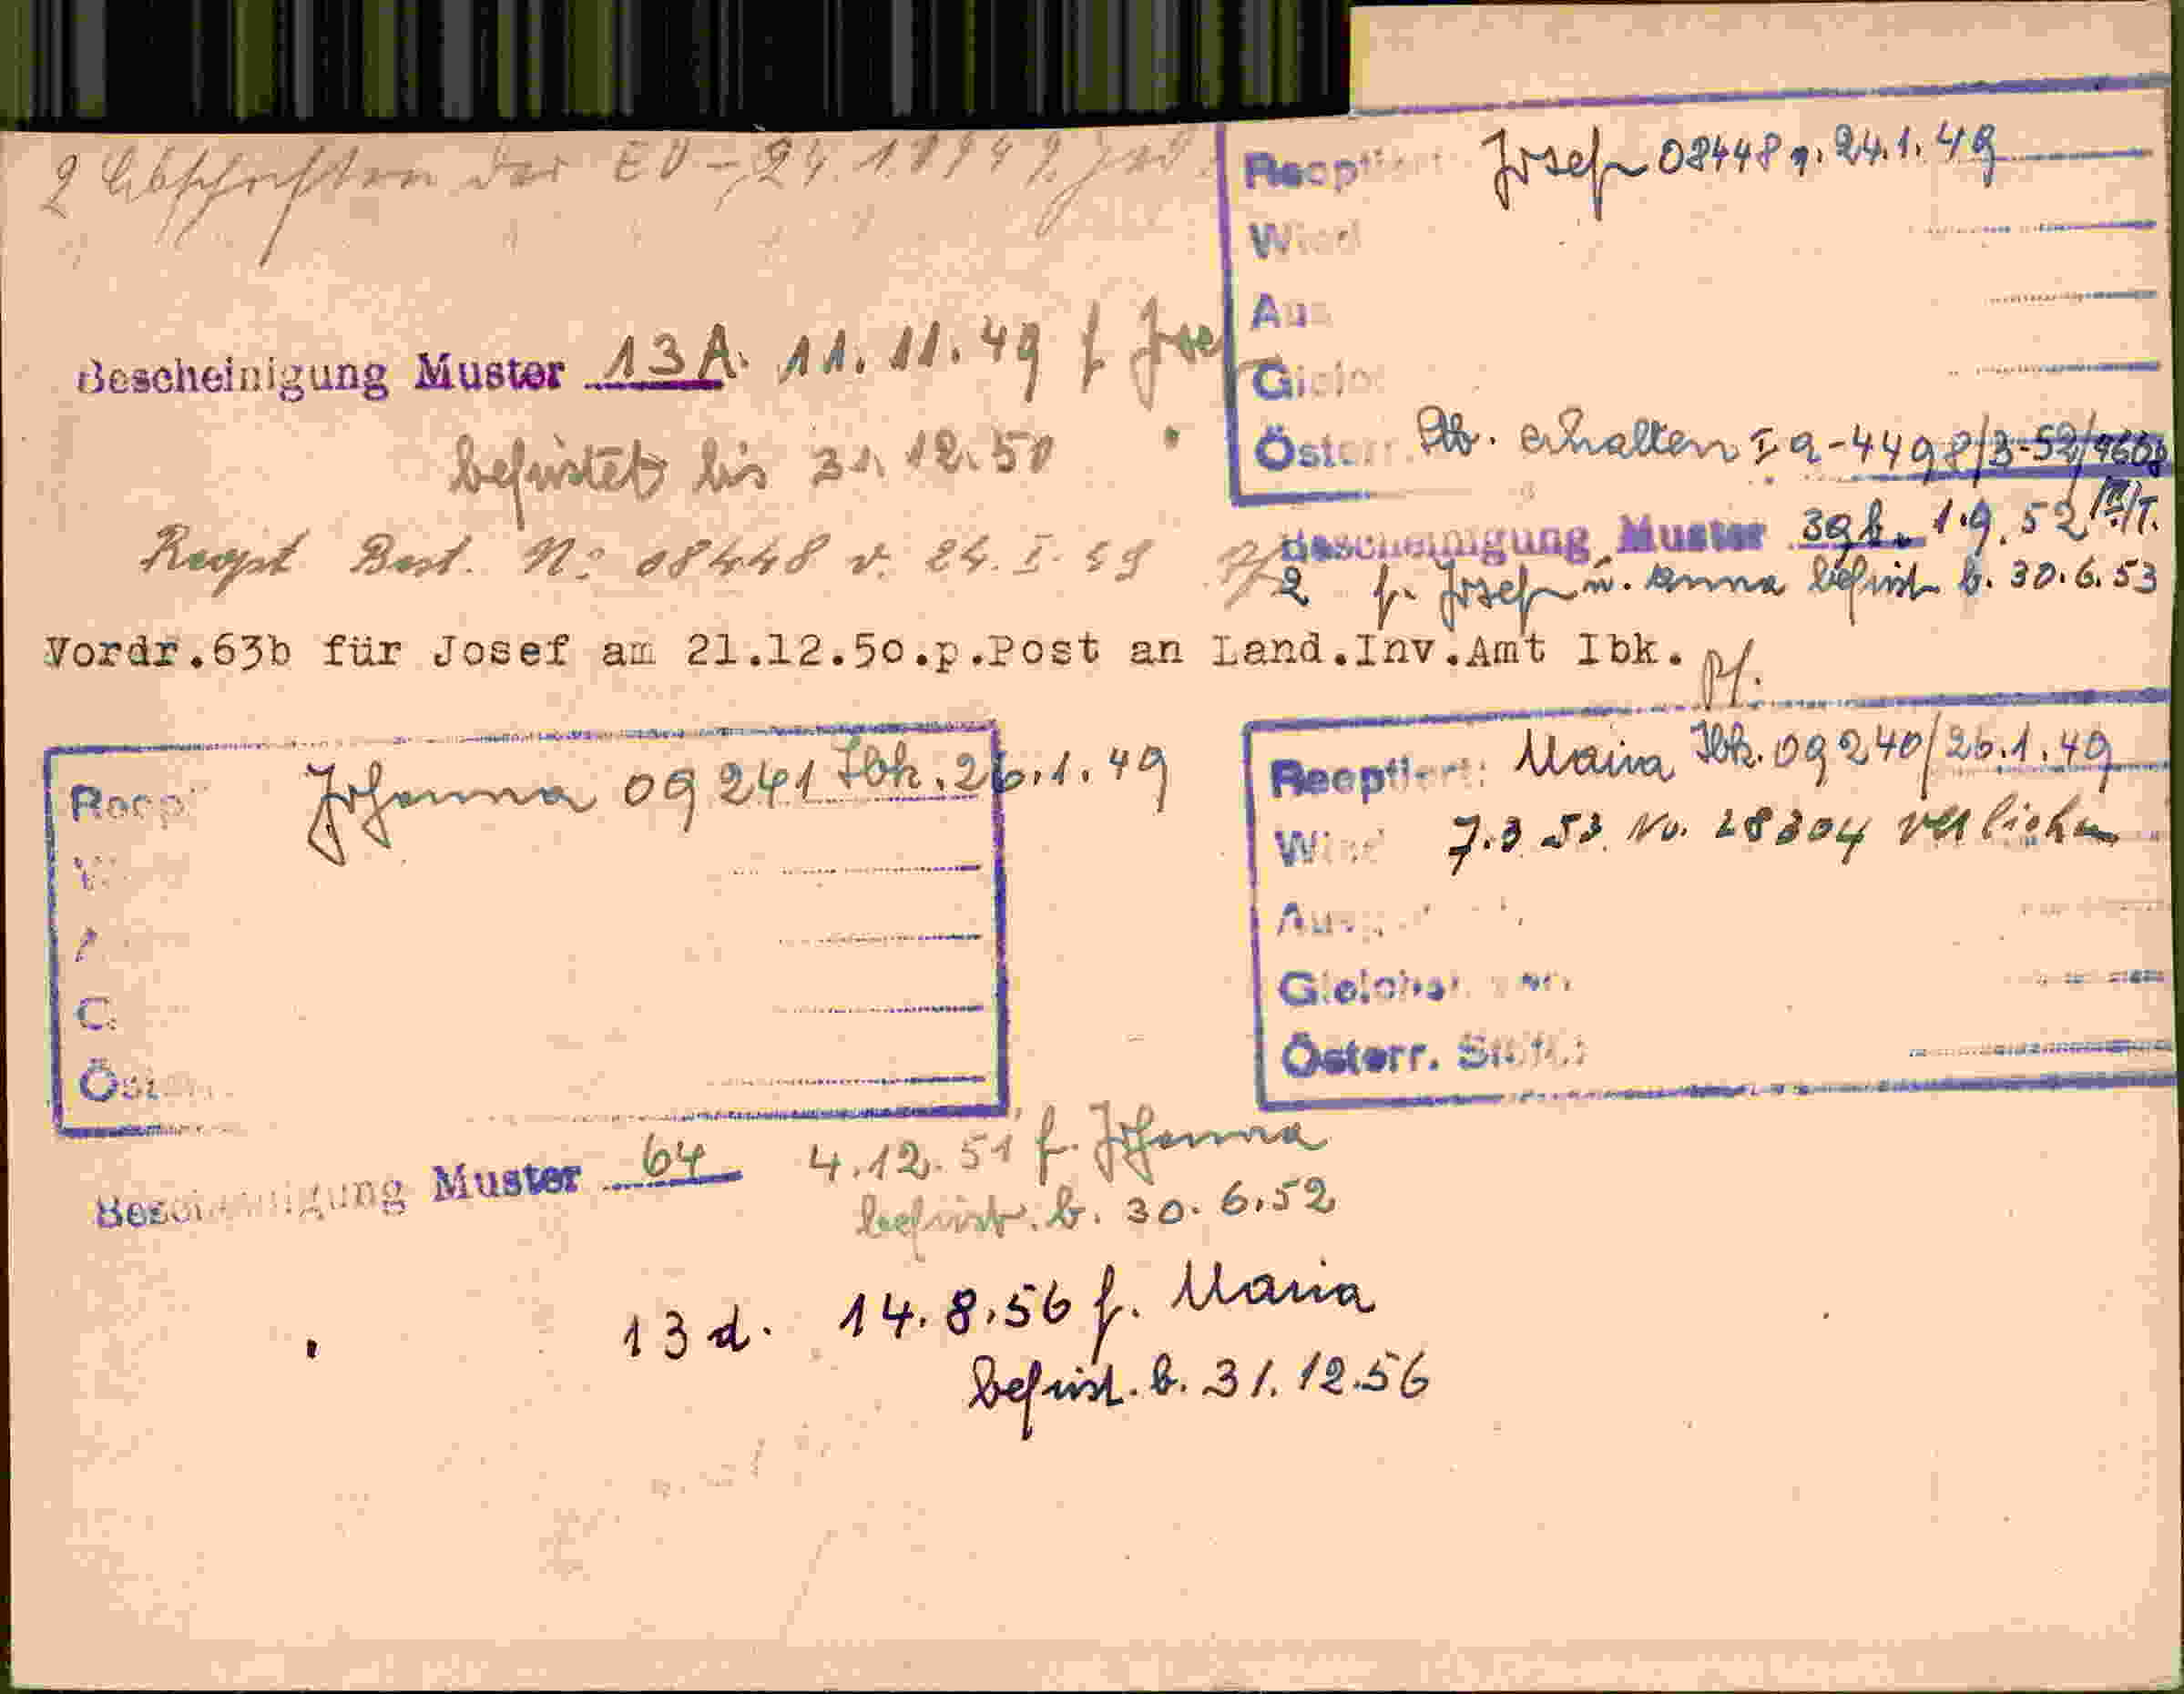 2 Abschriften der EU - 24.1.1949
Reopt Josef 08448 v. 24.1.49
Wied
Aus
Bescheinigung Muster 13A. 11.11.49 f Josef
Gleic
befristet bis 31.12.50
Österr. Stb. erhalten I a-4498/3-52/
Reopt Best. No 08448 v. 24.I.49
Bescheinigung Muster 39b. 1.9.52
2 f. Josef u. Anna befrist b. 30.6.53
Vordr.63b für Josef am 21.12.50.p.Post an Land.Inv.Amt Ibk.
Reop Johanna 09241 Ibk. 26.1.49
Reoptiert: Maria Ibk. 09240/26.1.49
Wied 7.3.53 No. 28304 verliehen
Österr.
Österr. Stb
Bescheinigung Muster 64 4.12.51 f. Johanna
befrist. b. 30.6.52
13d. 14.8.56 f. Maria
befrist. b. 31.12.56